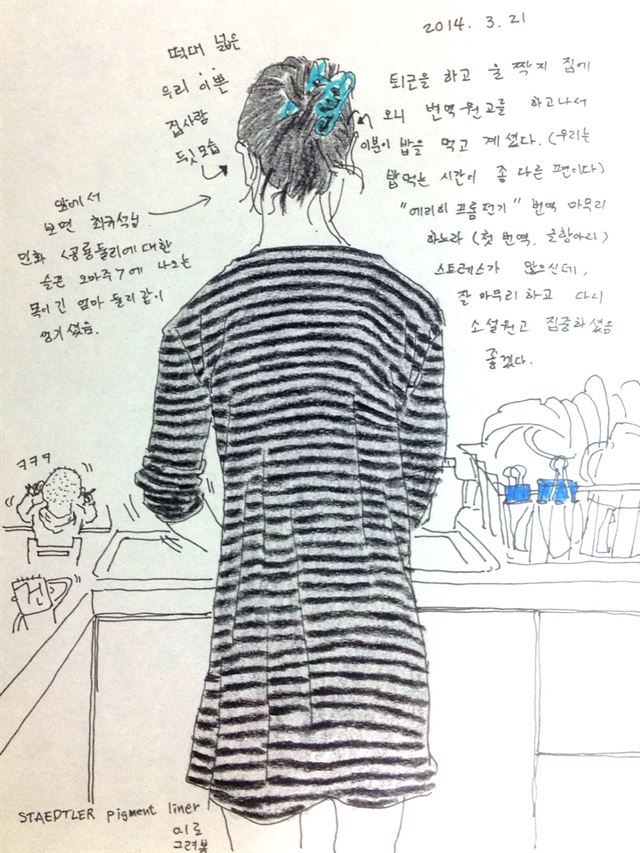 2014. 3. 21
떡대 넓은
우리 이쁜
집사람
뒷모습
퇴근을 하고 슬쩍 집에
오니 번역원고를 하고나서
이분이 밥을 먹고 계셨다. (우리는
밥먹는 시간이 좀 다른 편이다)
"에리히 프롬전기" 번역 마무리
하느라 (첫 번역. 글항아리)
스트레스가 많으신데,
잘 마무리 하고 다시
소설원고 집중하셨음
좋겠다.
앞에서
보면 최규석님
만화 <공룡둘리에 대한
슬픈 오마주>에 나오는
목이 긴 엄마 둘리 같이
생기셨음.
ㅋㅋㅋ
건
STAEDTLER pigment liner
0.1로
그려봄